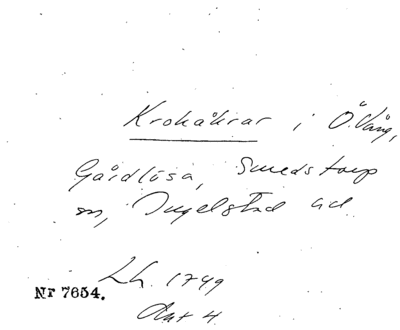 Krokåkrar i Ö. Vång,
Gårdlösa, Smedstorp
sn, Ingelstad hd
Lh. 1749
Akt 4
Nr 7654.